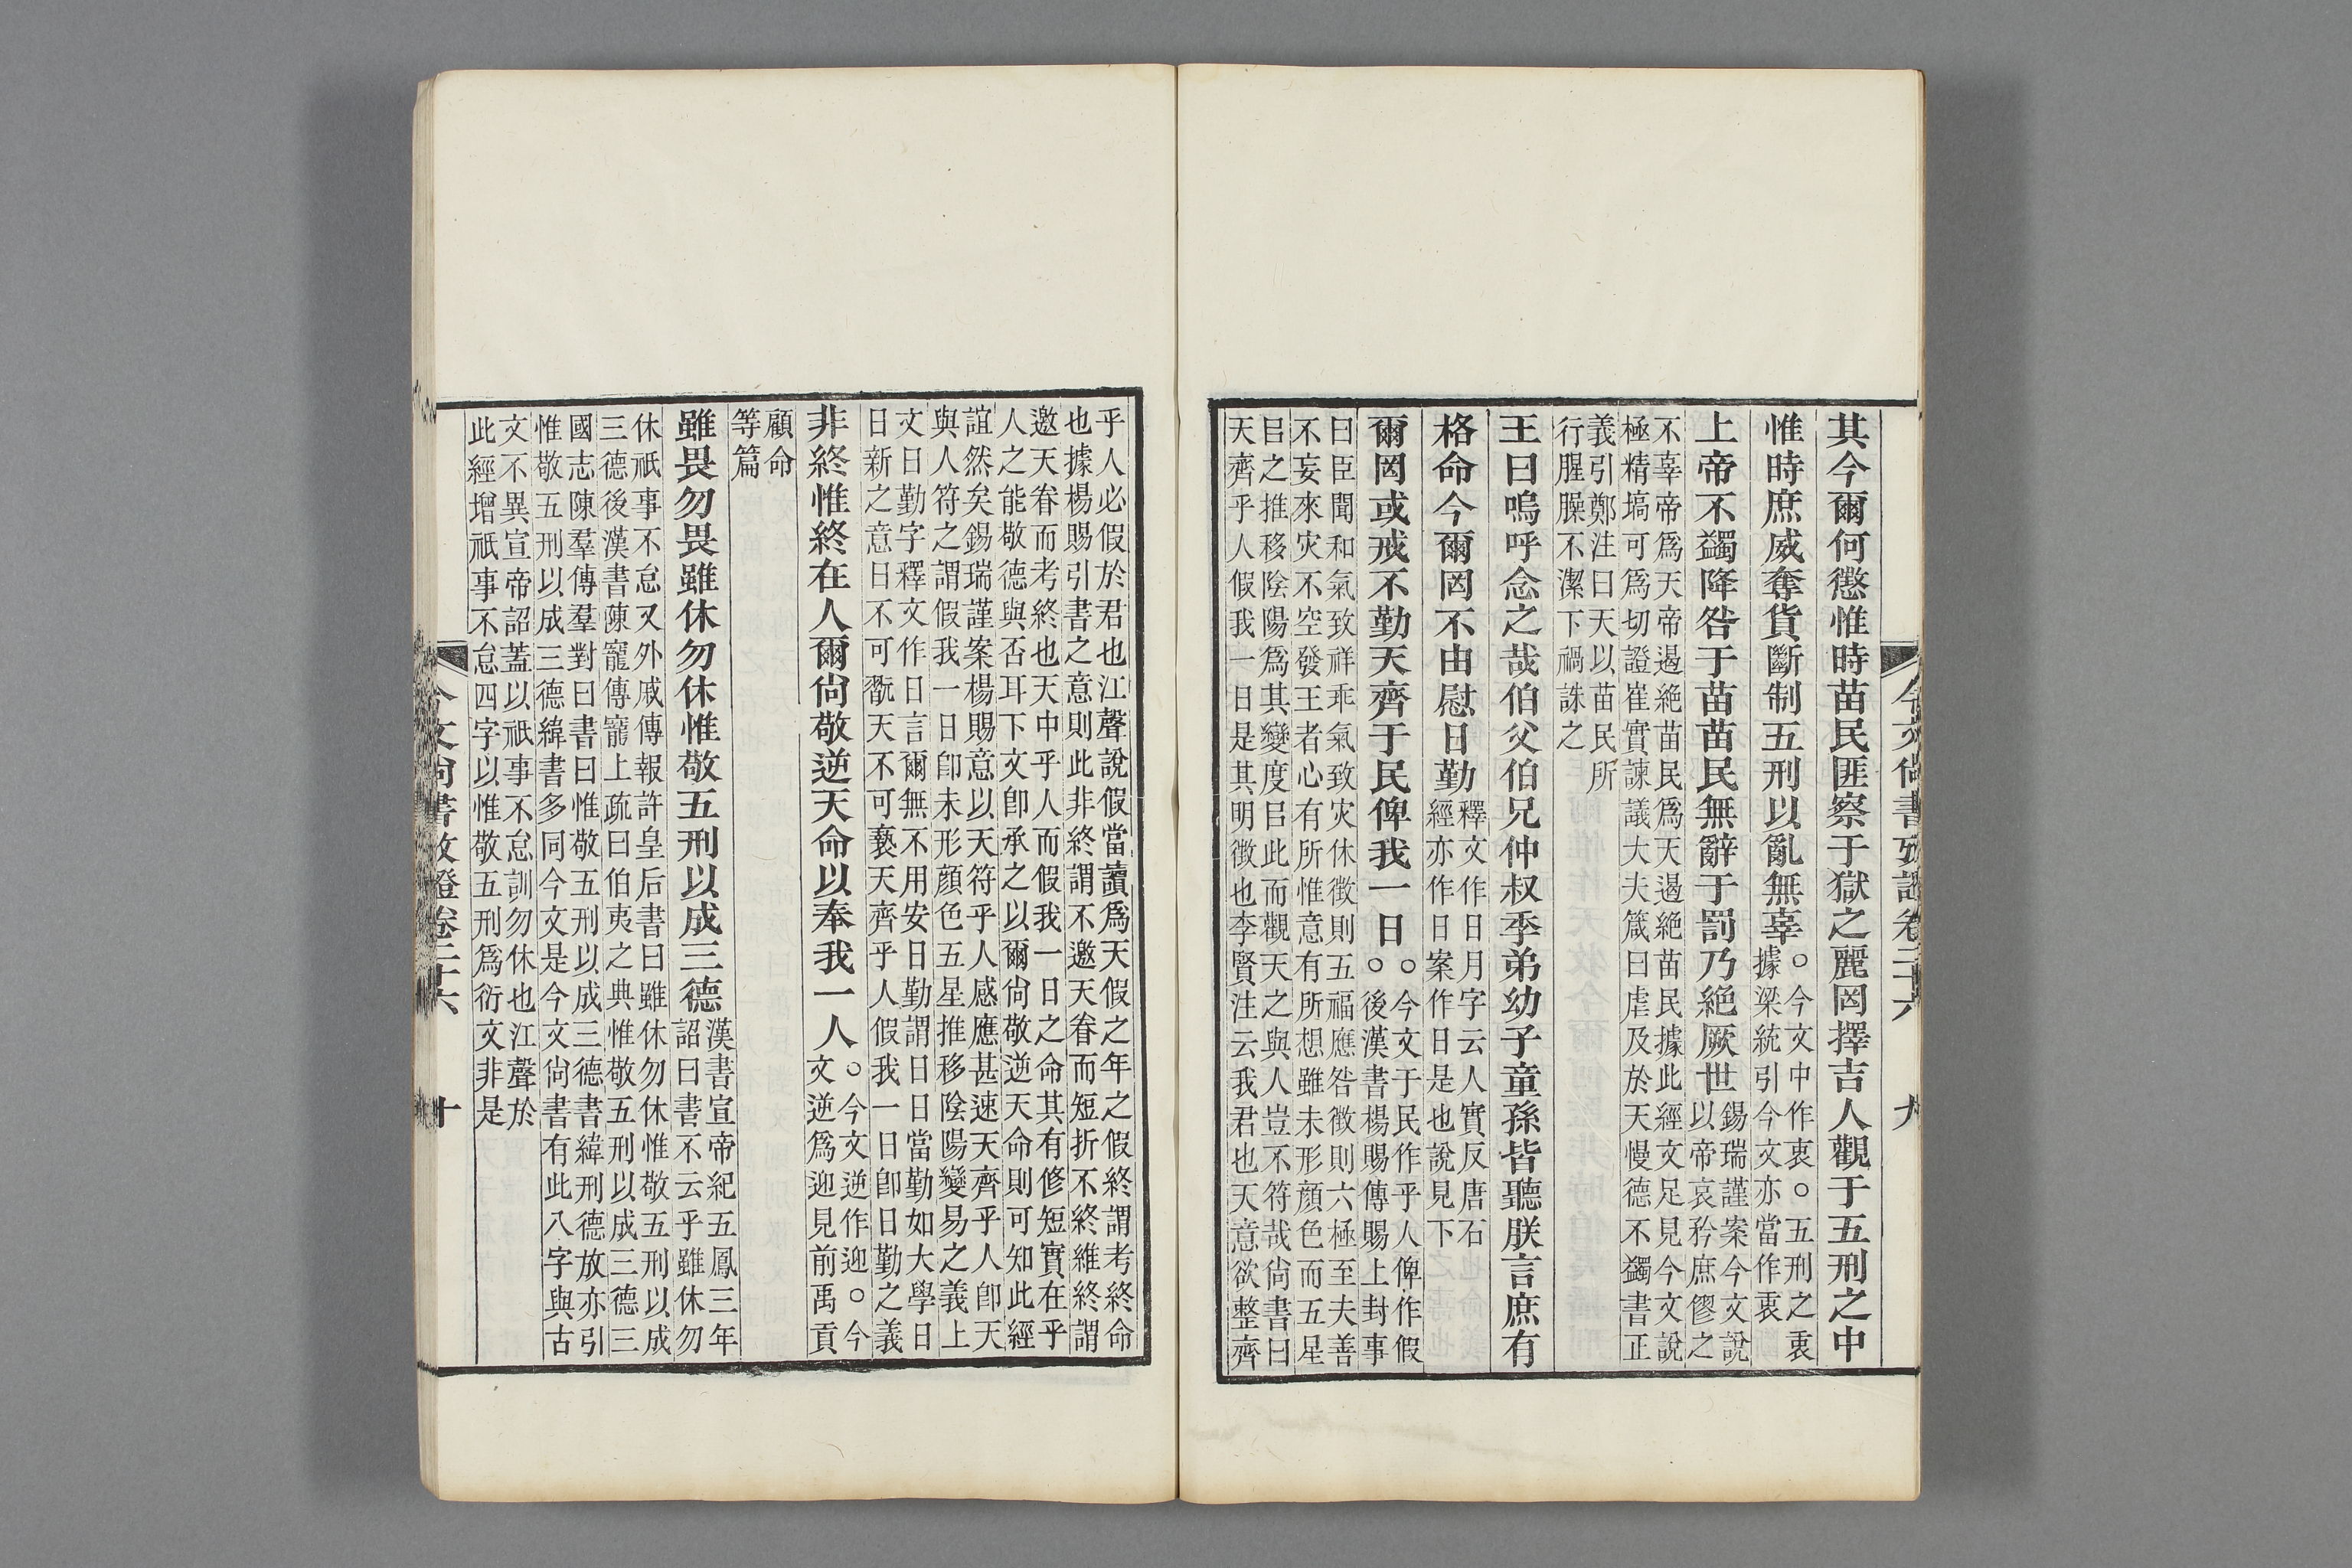 今文尙書攷證卷二十六 九
其今爾何懲惟時苗民匪察于獄之麗罔擇吉人觀于五刑之中
惟時庶威奪貨斷制五刑以亂無辜
○今文中作衷○五刑之衷
據梁統引今文亦當作衷
上帝不蠲降咎于苗苗民無辭于罰乃絶厥世
錫瑞謹案今文說
以帝哀矜庶僇之
不辜帝爲天帝遏絶苗民爲天遏絶苗民據此經文足見今文說
極精塙可爲切證崔實諫議大夫箴曰虐及於天慢德不蠲書正
義引鄭注曰天以苗民所
行腥臊不潔下禍誅之
王曰嗚呼念之哉伯父伯兄仲叔季弟幼子童孫皆聽朕言庶有
格命今爾罔不由慰日勤
釋文作日月字云人實反唐石
經亦作日案作日是也說見下
爾罔或戒不勤天齊于民俾我一日
○今文于民作乎人俾作假
○後漢書楊賜傳賜上封事
曰臣聞和氣致祥乖氣致灾休徴則五福應咎徴則六極至夫善
不妄來灾不空發王者心有所惟意有所想雖未形顔色而五星
㠯之推移陰陽爲其變度㠯此而觀天之與人豈不符哉尙書曰
天齊乎人假我一日是其明徴也李賢注云我君也天意欲整齊
乎人必假於君也江聲說假當讀爲天假之年之假終謂考終命
也據楊賜引書之意則此非終謂不邀天眷而短折不終維終謂
邀天眷而考終也天中乎人而假我一日之命其有修短實在乎
人之能敬德與否耳下文卽承之以爾尙敬逆天命則可知此經
誼然矣錫瑞謹案楊賜意以天符乎人感應甚速天齊乎人卽天
與人符之謂假我一日卽未形顔色五星推移陰陽變易之義上
文日勤字釋文作日言爾無不用安日勤謂日日當勤如大學日
日新之意日不可翫天不可褻天齊乎人假我一日卽日勤之義
非終惟終在人爾尙敬逆天命以奉我一人
○今文逆作迎○今
文逆爲迎見前禹貢
顧命
等篇
雖畏勿畏雖休勿休惟敬五刑以成三德
漢書宣帝紀五鳳三年
詔曰書不云乎雖休勿
休祇事不怠又外戚傳報許皇后書曰雖休勿休惟敬五刑以成
三德後漢書陳寵傳寵上疏曰伯夷之典惟敬五刑以成三德三
國志陳羣傳羣對曰書曰惟敬五刑以成三德書緯刑德放亦引
惟敬五刑以成三德緯書多同今文是今文尙書有此八字與古
文不異宣帝詔蓋以祇事不怠訓勿休也江聲於
此經增祇事不怠四字以惟敬五刑爲衍文非是
今文尙書攷證卷二十六 十